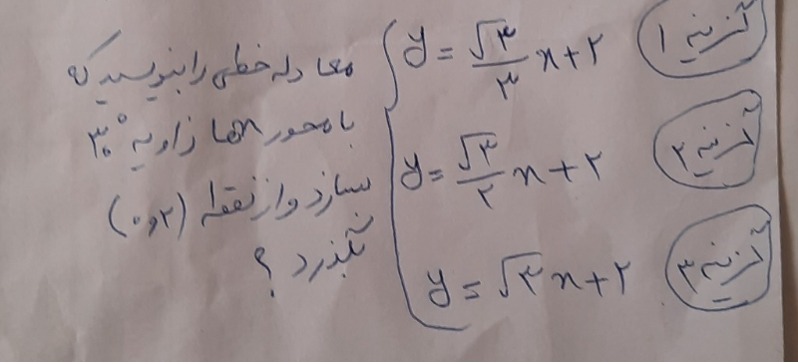 معادله خطی را بنویسید که
با محور xها زاویه ۳۰°
بسازد و از نقطه (۲و۰)
بگذرد ؟
y = √۳/۳ x + ۲ گزینه ۱
y = √۳/۲ x + ۲ گزینه ۲
y = √۳ x + ۲ گزینه ۳